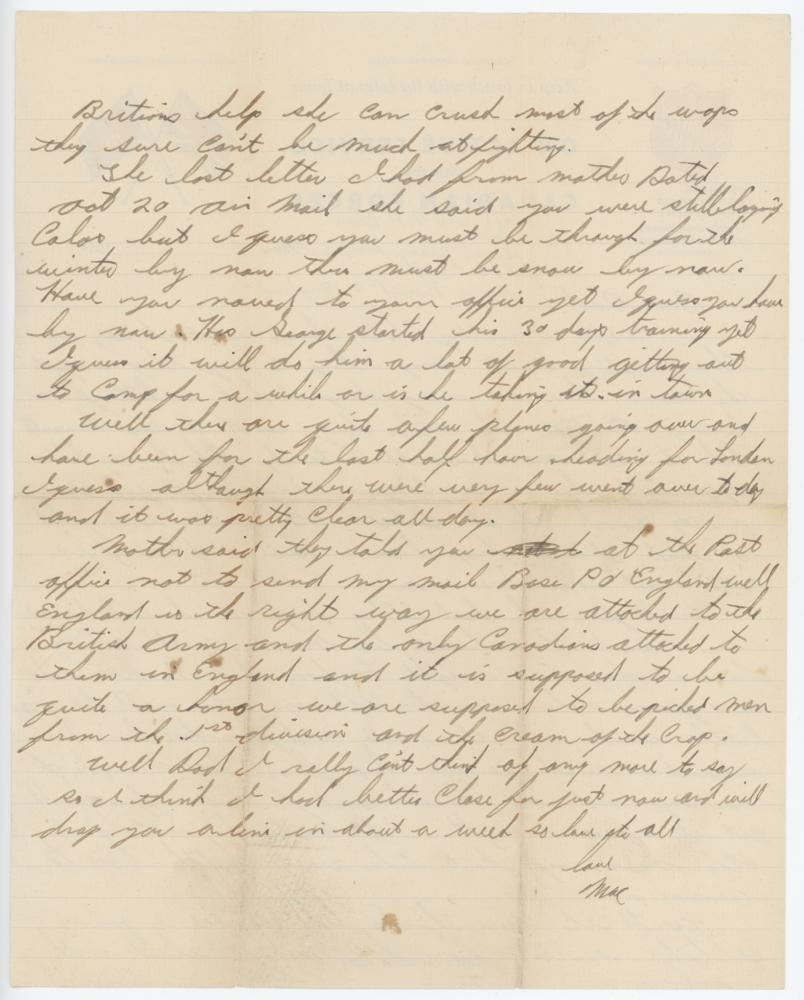 Britions help she can crush most of the wops
they sure can't be much at fighting.
The last letter I had from mother Dated
oct 20 air mail she said you were still laying
Calso but I guess you must be through for the
winter by now ther must be snow by now.
Have you moved to your office yet I guess you have
by now. Has George started his 30 days training yet
I guess it will do him a lot of good getting out
to Camp for a while or is he taking it in town
Well ther are quite a few planes going over and
have been for the last half hour heading for London
I guess although there were very few went over to day
and it was pretty clear all day.
Mother said they told you at the Post
office not to send my mail Base P O England well
England is the right way we are attached to the
British Army and the only Canadians attached to
them in England and it is supposed to be
quite a honor we are supposed to be picked men
from the 1st division and the cream of the Crop.
Well Dad I rally Can't think of any more to say
so I think I had better Close for just now and will
drop you a line in about a week so love to all
love
Mac